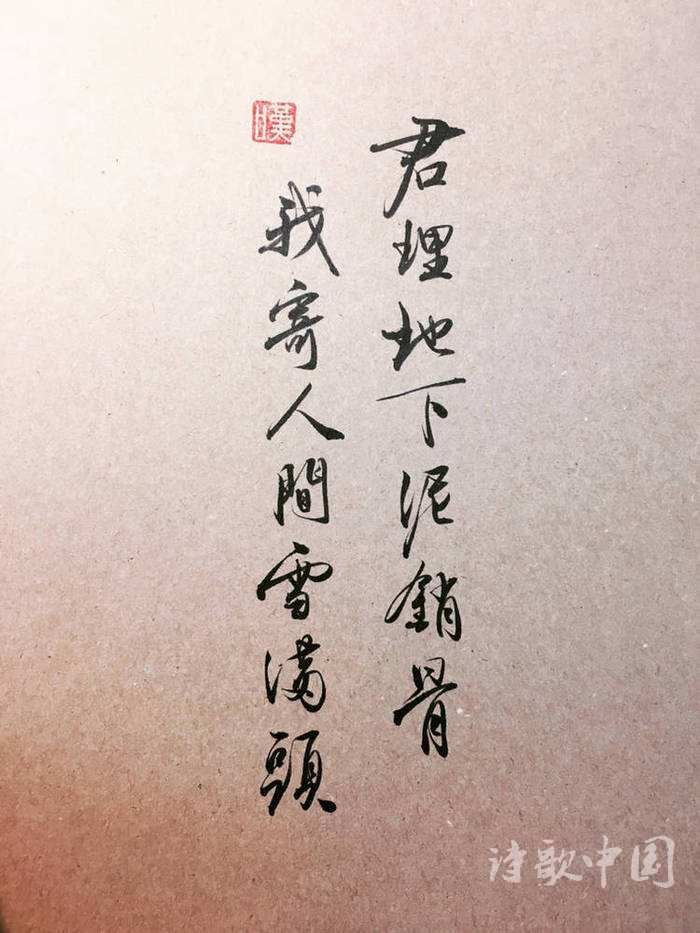 君埋地下泥銷骨
我寄人間雪滿頭
诗歌中国